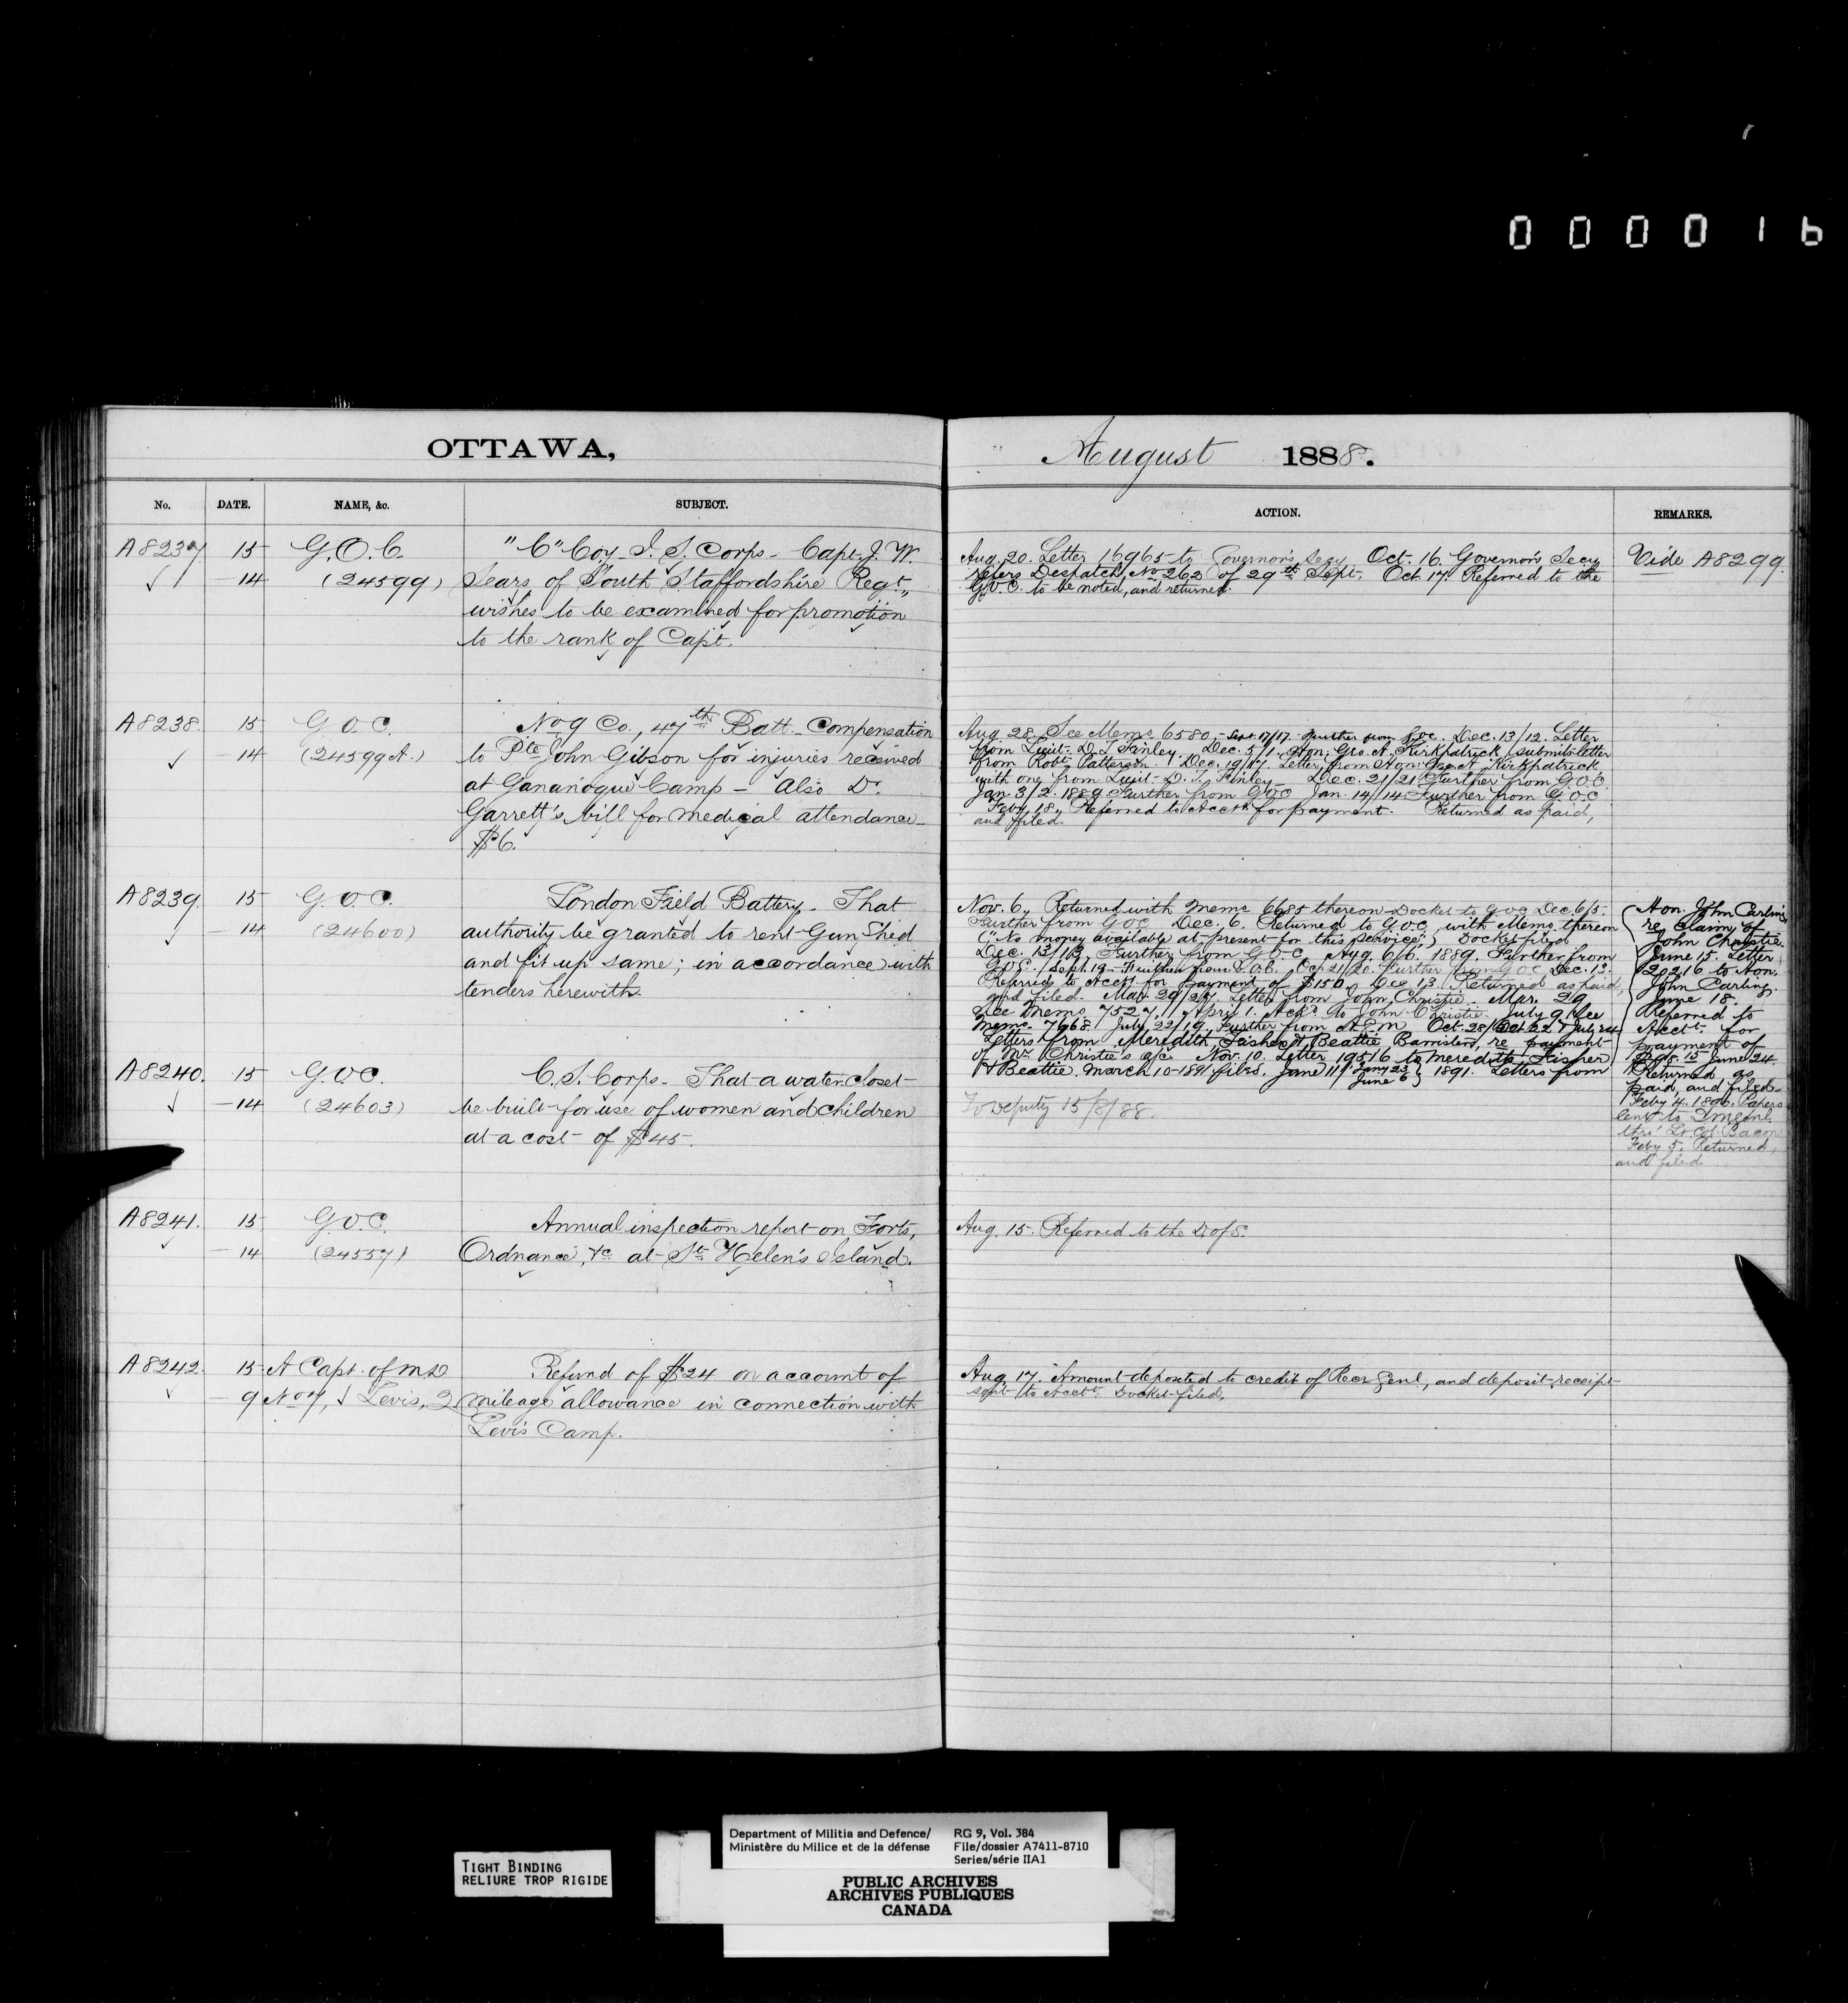 000016
OTTAWA,
August 1888.
No. DATE. NAME, &c. SUBJECT.
ACTION. REMARKS.
A8237 15 G.O.C. "C" Coy. I. S. Corps - Capt J. W.
14 (24599) Sears, of South Staffordshire Regt.,
wishes to be examined for promotion
to the rank of Capt.
Aug. 20. Letter 16965 to Governor's Secy Oct. 16 Governor's Secy
refers Despatch, No 262 of 29th Sept. Oct 17. Referred to the
G.O.C. to be noted, and returned.
Vide A8299.
A8238. 15 G.O.C. No 9 Co., 47th Batt. Compensation
14 (24599A.) to Pte John Gibson for injuries received
at Gananoque Camp - Also Dr.
Garrett's bill for medical attendance
$6.
Aug. 28. See Memo 6580, - Sept. 17/17. Further from G.O.C. Dec. 13/12. Letter
from Lieut. D. T. Finley. Dec. 5/1. Hon. Geo. A. Kirkpatrick submits letter
from Robt. Patterson. Dec. 19/17. Letter from Hon. Geo. A. Kirkpatrick
with one from Lieut. D. T. Finley Dec. 21/21 Further from G.O.C.
Jan 3/2. 1889. Further from G.O.C Jan. 14/14 Further from G.O.C
Feby 18., Referred to Acctt for payment. Returned as paid,
and filed.
A8239. 15 G.O.C. London Field Battery. That
14 (24600) authority be granted to rent Gun Shed
and fit up same; in accordance with
tenders herewith.
Nov. 6, Returned with memo 6685 thereon Docket to G.O.C Dec. 6/5.
Further from G.O.C Dec. 6. Returned to G.O.C., with Memo thereon
("No money available at present for this service".) Docket filed
Dec. 13/13, Further from G.O.C. Aug. 6/6. 1889. Further from
G.O.C. Sept. 19 Further from Oct 21/20. Further from G.O.C Dec. 13.
Referred to Acctt for payment of $150. Dec 13. Returned as paid,
and filed. Mar 29/27. Letter from John Christie. Mar. 29
See Memo 7527. April 1. Ackd to John Christie July 9 See
Memo 7668. July 22/19, Further from Oct. 28/ Oct 22 & July 24
Letters from Meredith, Fisher & Beattie Barristers, re payment
of Mr. Christie's a/c. Nov. 10. Letter 19516 to Meredith, Fisher
& Beattie. March 10-1891 files. June 11/ June 6} 1891. Letters from
Hon. John Carling,
re claim of
John Christie.
June 15. Letter
20216 to Hon.
John Carling.
June 18.
Referred to
Acctt. for
payment of
June 24
Returned as
paid, and filed.
Feby 4. 1896. Papers
sent to
thro' Lt. Col. Bacon
Feby 5. Returned,
and filed
A8240. 15 G.O.C. C. S. Corps - That a water closet
14 (24603) be built for use of women and children
at a cost of $45.
To Deputy 15/8/88.
A8241. 15 G.O.C. Annual inspection report on Forts,
14 (24557) Ordnance, &c. at St. Helen's Island.
Aug. 15. Referred to the D. of S.
A8242. 15 A Capt. of M.S. Refund of $24 on account of
9 No 7, Levis, Q mileage allowance in connection with
Levis Camp.
Aug. 17. Amount deposited to credit of Recr Genl, and deposit receipt
sent to Acctt. Docket filed.
TIGHT BINDING
RELIURE TROP RIGIDE
Department of Militia and Defence/ RG 9, Vol. 384
Ministère du Milice et de la défense File/dossier A7411-8710
Series/série IIA1
PUBLIC ARCHIVES
ARCHIVES PUBLIQUES
CANADA